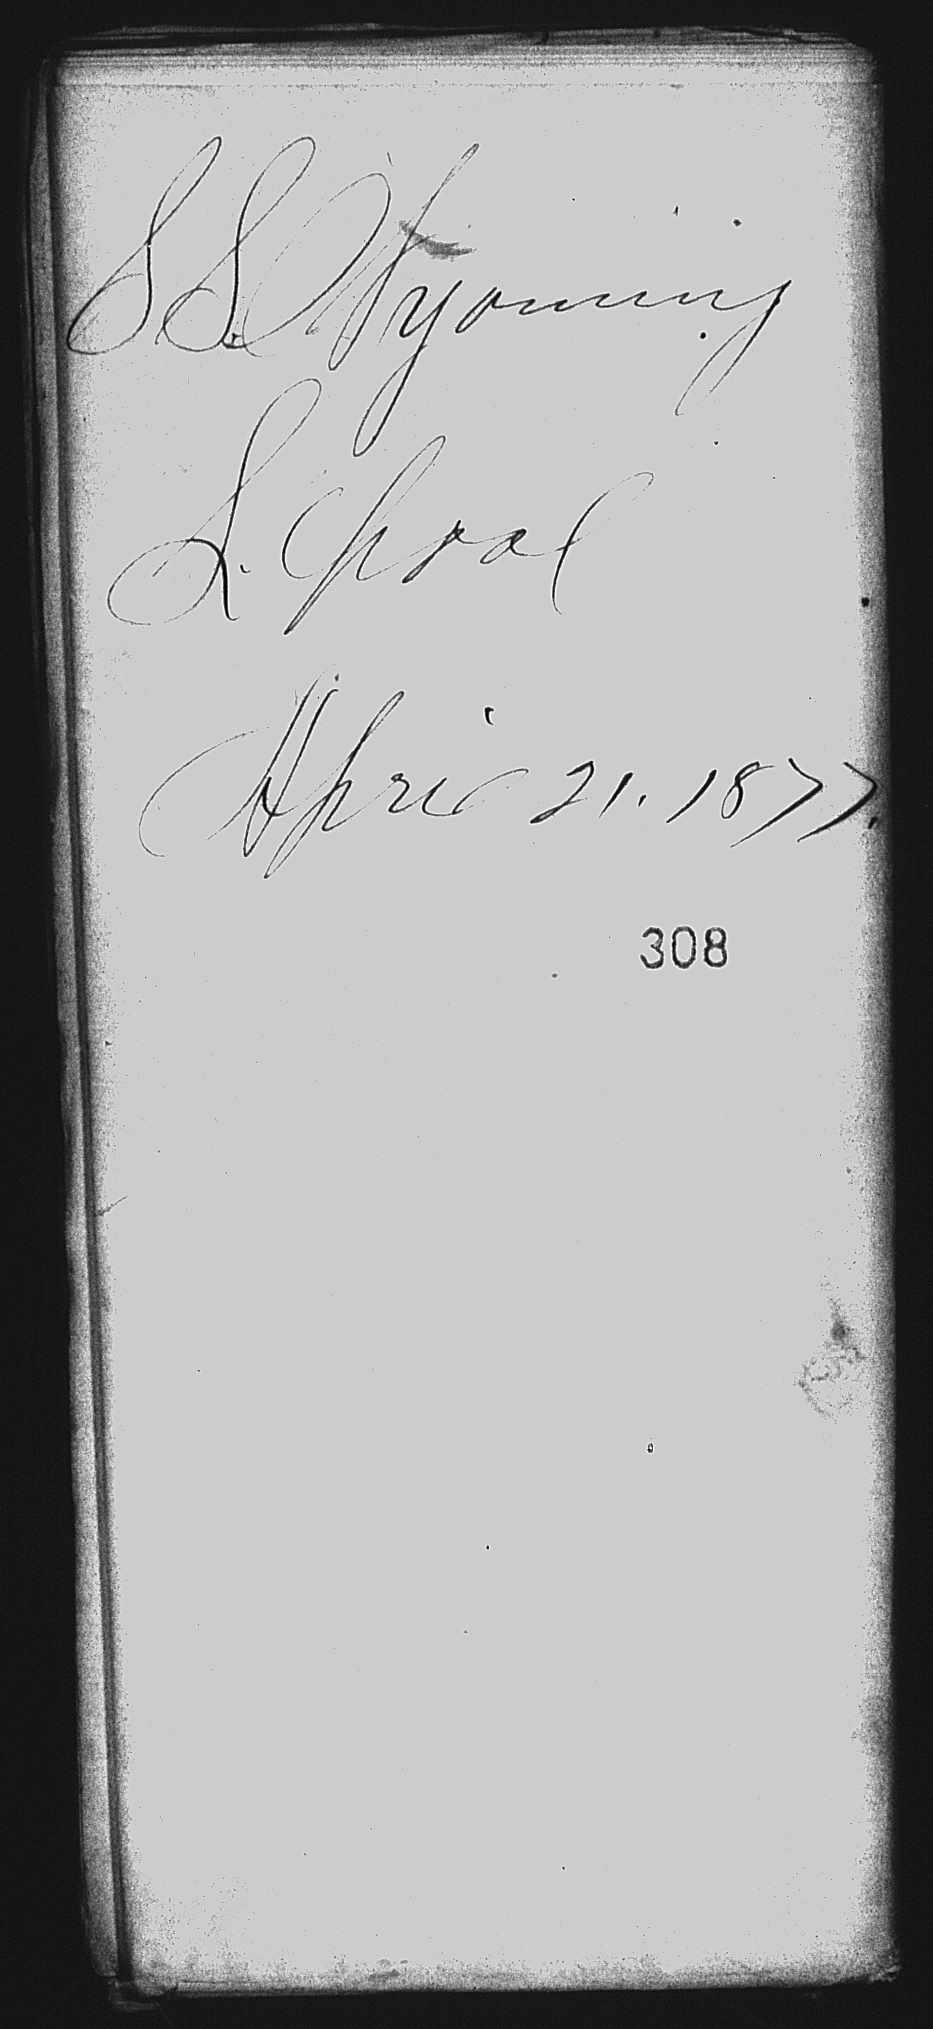 S.S. Wyoming
L.pool
April 21. 1877.
308